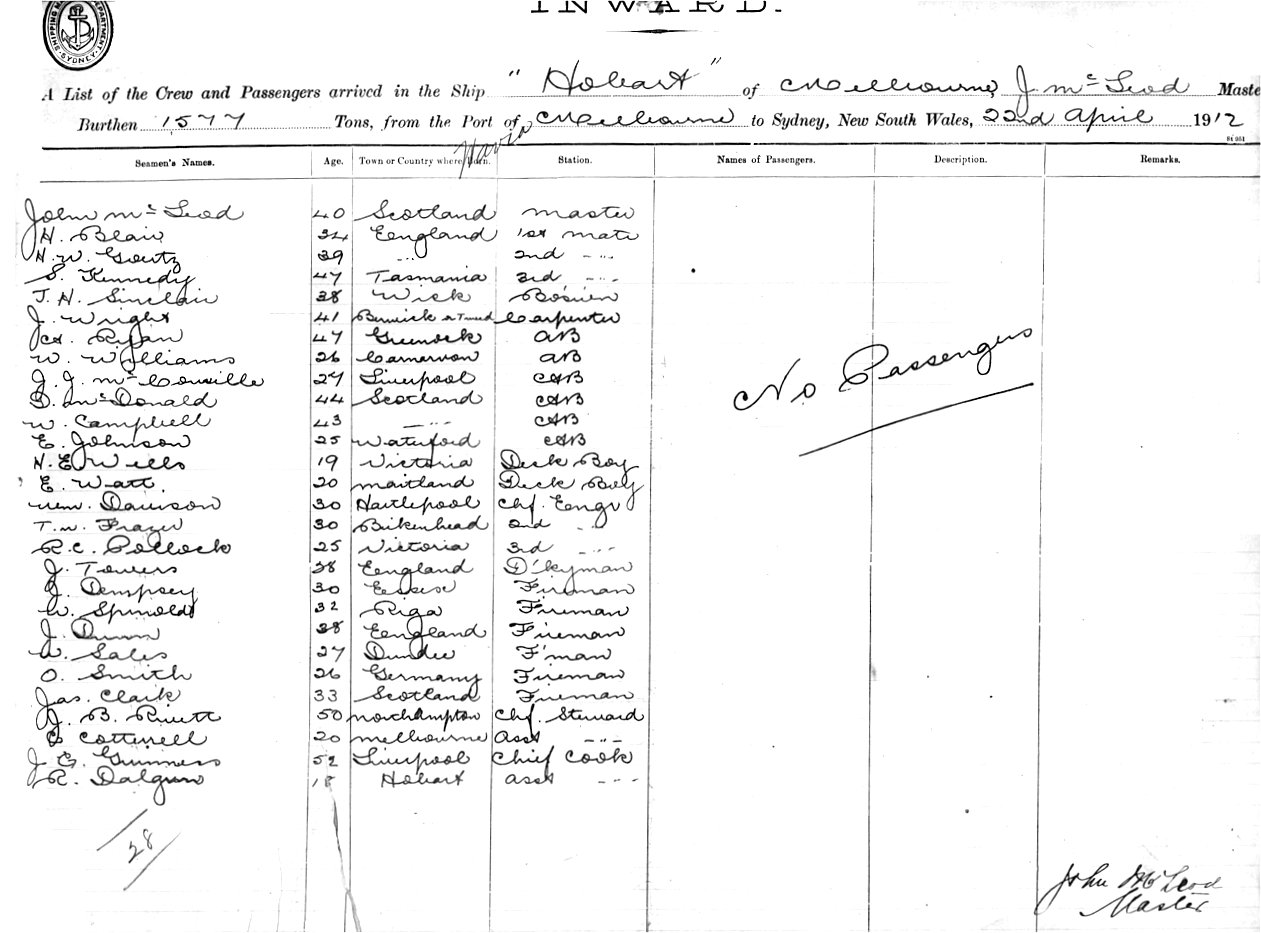 INWARD.
SHIPPING DEPARTMENT SYDNEY
A List of the Crew and Passengers arrived in the Ship "Hobart" of Melbourne, J. McLeod Maste
Burthen 1577 Tons, from the Port of Melbourne to Sydney, New South Wales, 22nd April 1912
via
Seamen's Names. Age. Town or Country where Born. Station. Names of Passengers. Description. Remarks.
John McLeod 40 Scotland Master
H. Blair 34 England 1st mate
H. W. Goertz 39 " 2nd "
S. Kennedy 47 Tasmania 3rd "
J. H. Sinclair 38 Wick Bosun
J. Wright 41 Berwick on Tweed Carpenter
Ryan 47 Greenock AB
W. Williams 26 Carnarvon AB
J. J. McConville 27 Liverpool AB
D. McDonald 44 Scotland AB
W. Campbell 43 " AB
E. Johnson 25 Waterford AB
H. E. Wills 19 Victoria Deck Boy
E. Watt 20 Maitland Deck Boy
Wm. Davison 30 Hartlepool Chf. Engr
T. W. Frazer 30 Birkenhead 2nd "
R. C. Pollock 25 Victoria 3rd "
J. Towers 38 England D'kyman
J. Dempsey 30 Essex Fireman
32 Riga Fireman
J. Dunn 38 England Fireman
Sales 27 Dundee F'man
O. Smith 26 Germany Fireman
Jas. Clark 33 Scotland Fireman
J. B. Rivett 50 Northampton Chf. Steward
Cotterell 20 Melbourne Asst "
J. G. Guinness 52 Liverpool Chief Cook
R. 18 Hobart Asst "
No Passengers
28
John McLeod
Master